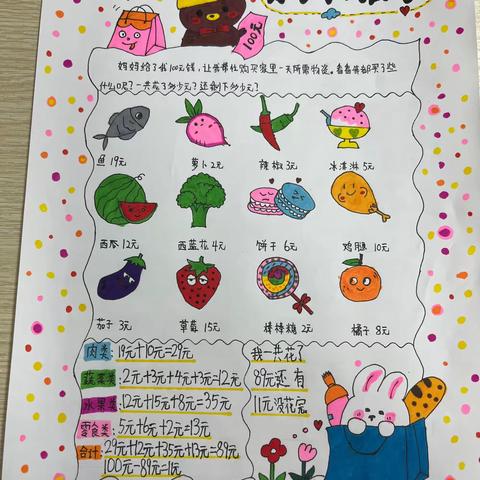 100元
妈妈给了我100元钱,让我帮忙购买家里一天所需物资。看看我都买了些
什么呢?一共花了多少元?还剩下多少元?
鱼 19元
萝卜 2元
辣椒 3元
冰淇淋 5元
西瓜 12元
西蓝花 4元
饼干 6元
鸡腿 10元
茄子 3元
草莓 15元
棒棒糖 2元
橘子 8元
肉类:19元+10元=29元
蔬菜类:2元+3元+4元+3元=12元
水果类:12元+15元+8元=35元
零食类:5元+6元+2元=13元
合计:29元+12元+35元+13元=89元
100元-89元=11元
我一共花了
89元还有
11元没花完